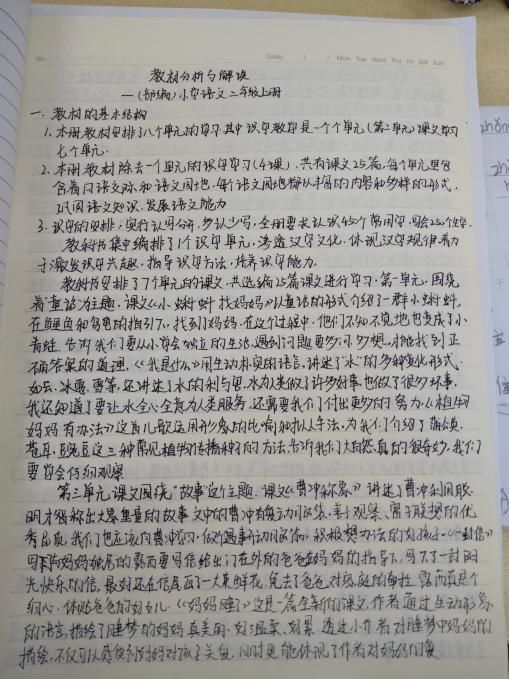 Date: / / Mon Tue Wed Thu Fri Sat Sun
教材分析与解读
—(部编)小学语文二年级上册
一、教材的基本结构
1. 本册教材安排了八个单元的学习.其中识字教学是一个个单元(第二单元)课文学习
七个单元.
2. 本册教材除去一个单元的识字学习(4课).共有课文25篇,每个单元里包
含着口语交际和语文园地,每个语文园地都以丰富的内容和多样的形式,
巩固语文知识.发展语文能力
3. 识字的安排,实行认写分开,多认少写,全册要求认识450个常用字.写会250个生字.
教科书集中编排了1个识字单元,渗透汉字文化.体现汉字规律.着力
于激发识字兴趣,指导识字方法,培养识字能力.
教科书安排了7个单元的课文,共选编25篇课文进行学习.第一单元,围绕
着"童话"为主题.课文《小蝌蚪找妈妈》以童话的形式介绍了一群小蝌蚪.
在鲤鱼和乌龟的指引下.找到了妈妈.在这个过程中.他们不知不觉地也变成了小
青蛙.告诉我们要从小学会独立的生活,遇到问题要多问多想,才能找到正
确答案的道理.《我是什么》用生动朴实的语言,讲述了"水"的多种变化形式.
如云、冰雹、雪等,还讲述了水的利与害.水为人类做了许多好事也做了很多坏事,
我还知道了要让水全心全意为人类服务,还需要我们付出更多的努力.《植物
妈妈有办法》这首儿歌运用形象的比喻和拟人手法,为我们介绍了蒲公英、
苍耳、豌豆这三种常见植物传播种子的方法.告诉我们大自然真的很奇妙,我们
要学会仔细观察
第三单元课文围绕"故事"这个主题.课文《曹冲称象》讲述了曹冲利用聪
明才智称出大象重量的故事文中的曹冲有
优秀品质,我们也应该向曹冲学习.
写了妈妈
光快乐的信,最好还在信后面一大束鲜花,
细心、体贴爸爸的好女儿《妈妈睡了》这是一篇全新的课文,作者通过生动形象
的语言,描绘了睡梦的妈妈真美丽.好温柔.好累.透过小作者对睡梦中妈妈的
描绘,不仅可以感受到妈妈对孩子关爱.同时更能体现了作者对妈妈的爱